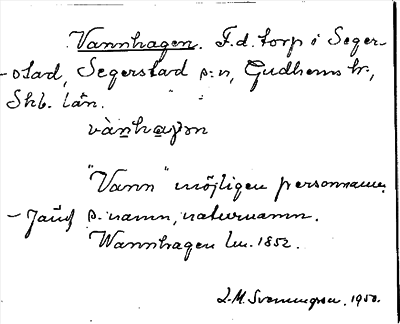 Vannhagen. F.d. torp i Seger-
stad, Segerstad s:n, Gudhems hr.,
Skb. län.
"Vann" möjligen personnamn.
Jämf s. namn, naturnamn.
Wannhagen lm. 1852.
1950.